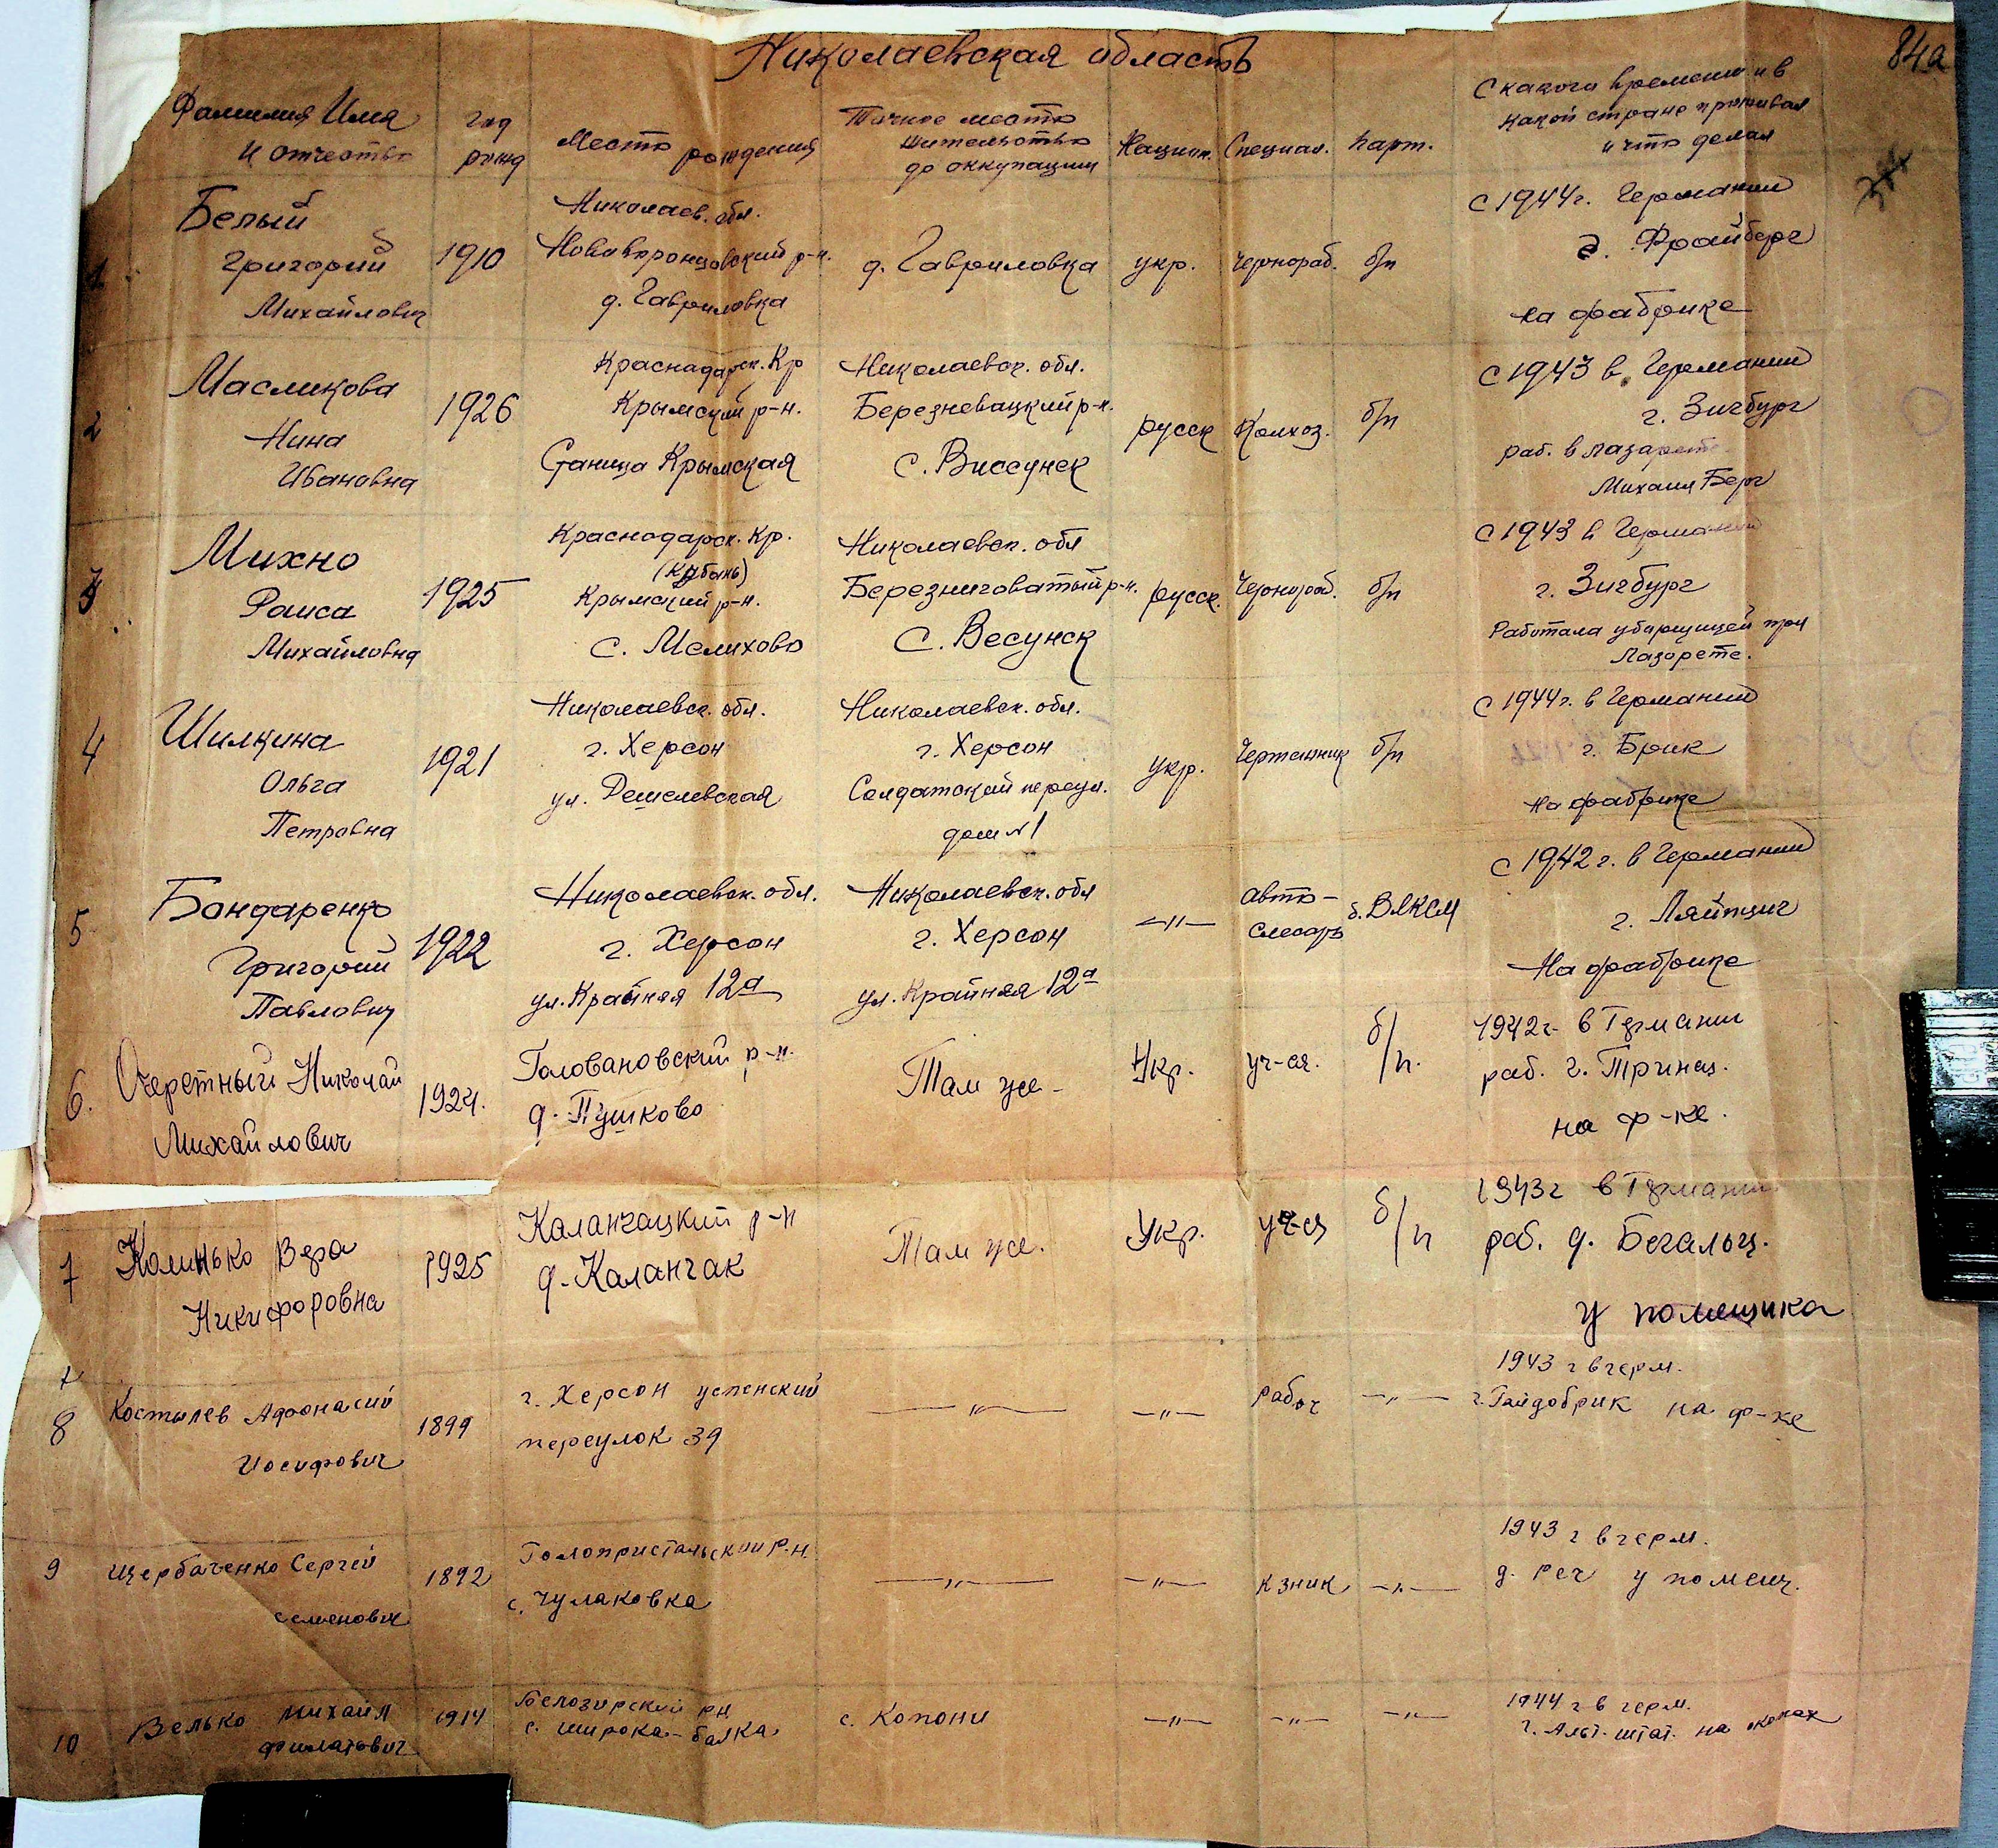 Николаевская область
84а
Фамилия Имя и отчество
год рожд
Место рождения
Точное место жительства до оккупации
Национ.
Специал.
Парт.
С какого времени и в какой стране проживал и что делал
1
Белый
Григорий
Михайлович
1910
Николаев. обл.
Нововоронцовский р-н.
д. Гавриловка
д. Гавриловка
укр.
Чернораб.
б/п
С 1944 г. Германии
г. Фрайберг
на фабрике
2
Масликова
Нина
Ивановна
1926
Краснодарск. Кр
Крымский р-н.
Станица Крымская
Николаевск. обл.
Березневацкий р-н.
С. Виссунск
русск
Колхоз.
б/п
С 1943 в Германии
г. Зигбург
раб. в лазарете
Михаил Берг
3
Михно
Раиса
Михайловна
1925
Краснодарск. Кр.
(Кубань)
Крымский р-н.
С. Мелихово
Николаевск. обл
Березниговатый р-н.
С. Весунск
русск.
Чернораб.
б/п
С 1943 в Германии
г. Зигбург
Работала уборщицей при
Лазорете.
4
Шилкина
Ольга
Петровна
1921
Николаевск. обл.
г. Херсон
ул. Решелевская
Николаевск. обл.
г. Херсон
Солдатский переул.
дом №1
укр.
Чертежник
б/п
С 1944 г. в Германии
г. Брик
на фабрике
5
Бондаренко
Григорий
Павлович
1922
Николаевск. обл.
г. Херсон
ул. Крайняя 12а
Николаевск. обл
г. Херсон
ул. Крайняя 12а
—〃—
авто-
слесарь
б. ВЛКСМ
С 1942 г. в Германии
г. Ляйпциг
На фабрике
6.
Очеретный Николай
Михайлович
1924.
Головановский р-н.
д. Пушково
Там же-
Укр.
уч-ся.
б/п.
1942 г. в Германии
раб. г. Тринац.
на ф-ке.
7
Колинько Вера
Никифоровна
1925
Каланчацкий р-н
д. Каланчак
Там же.
Укр.
уч-ся
б/п
1943 г в Германии
раб. д. Богальц.
у помещика
8
Костылев Афонасий
Иосифович
1899
г. Херсон успенский
переулок 39
—〃—
—〃—
рабоч
—〃—
1943 г в герм.
г. Гайдобрик на ф-ке
9
Щербаченко Сергей
семенович
1892
Голопристальский р.н.
с. Чулаковка
—〃—
—〃—
кзник
—〃—
1943 г в герм.
д. Реч у помещ.
10
Велько Михайл
филатович
1914
Белозирский рн
с. широка-балка.
с. Копони
—〃—
—〃—
—〃—
1944 г в герм.
г. Альт. штат. на окопах